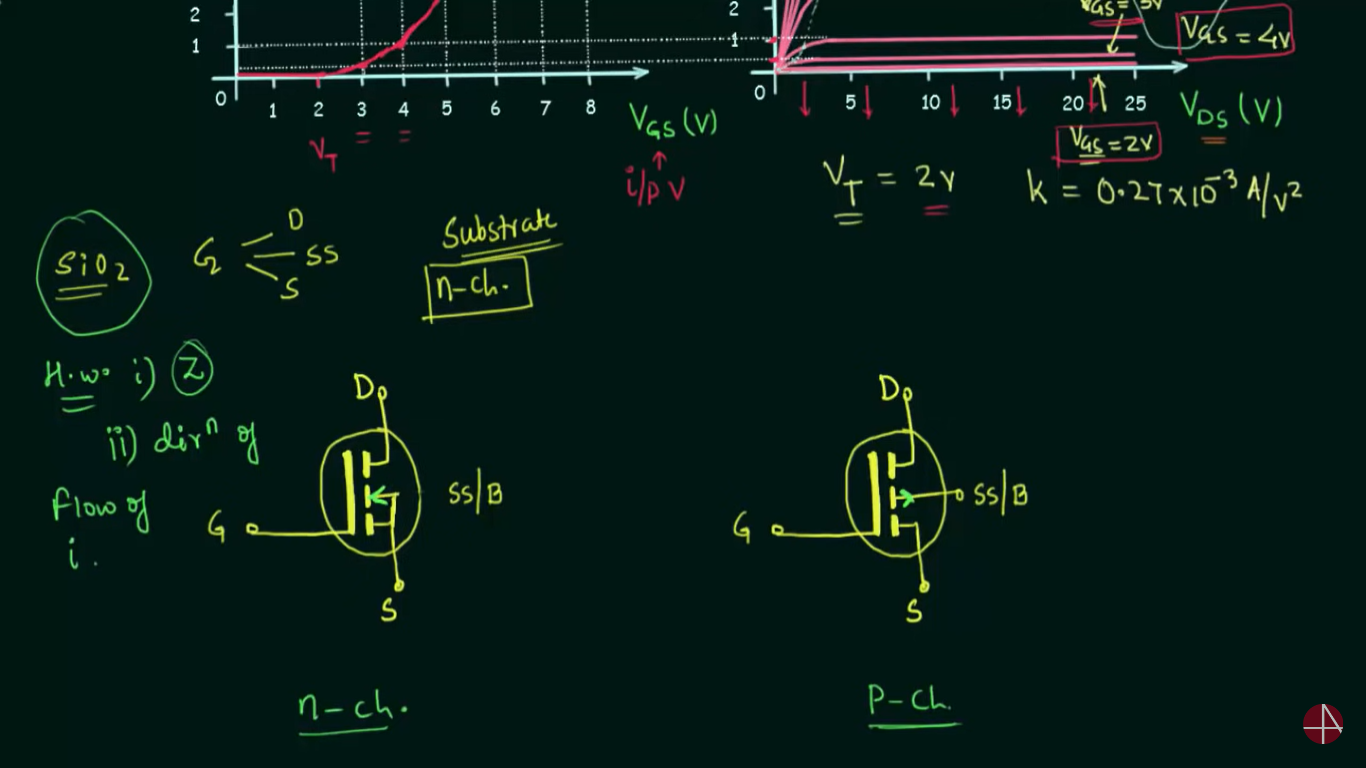 2
1
0
1 2 3 4 5 6 7 8
VT = =
VGS (V)
i/p V
2
1
0
5 10 15 20 25
VDS (V)
VGS = 3V
VGS = 4V
VGS = 2V
VT = 2V
k = 0.27x10⁻³ A/V²
SiO2
G
D
SS
S
Substrate
n-ch.
H.w. i) Z
ii) dirⁿ of
flow of
i.
D
G
SS/B
S
n-ch.
D
G
SS/B
S
P-Ch.